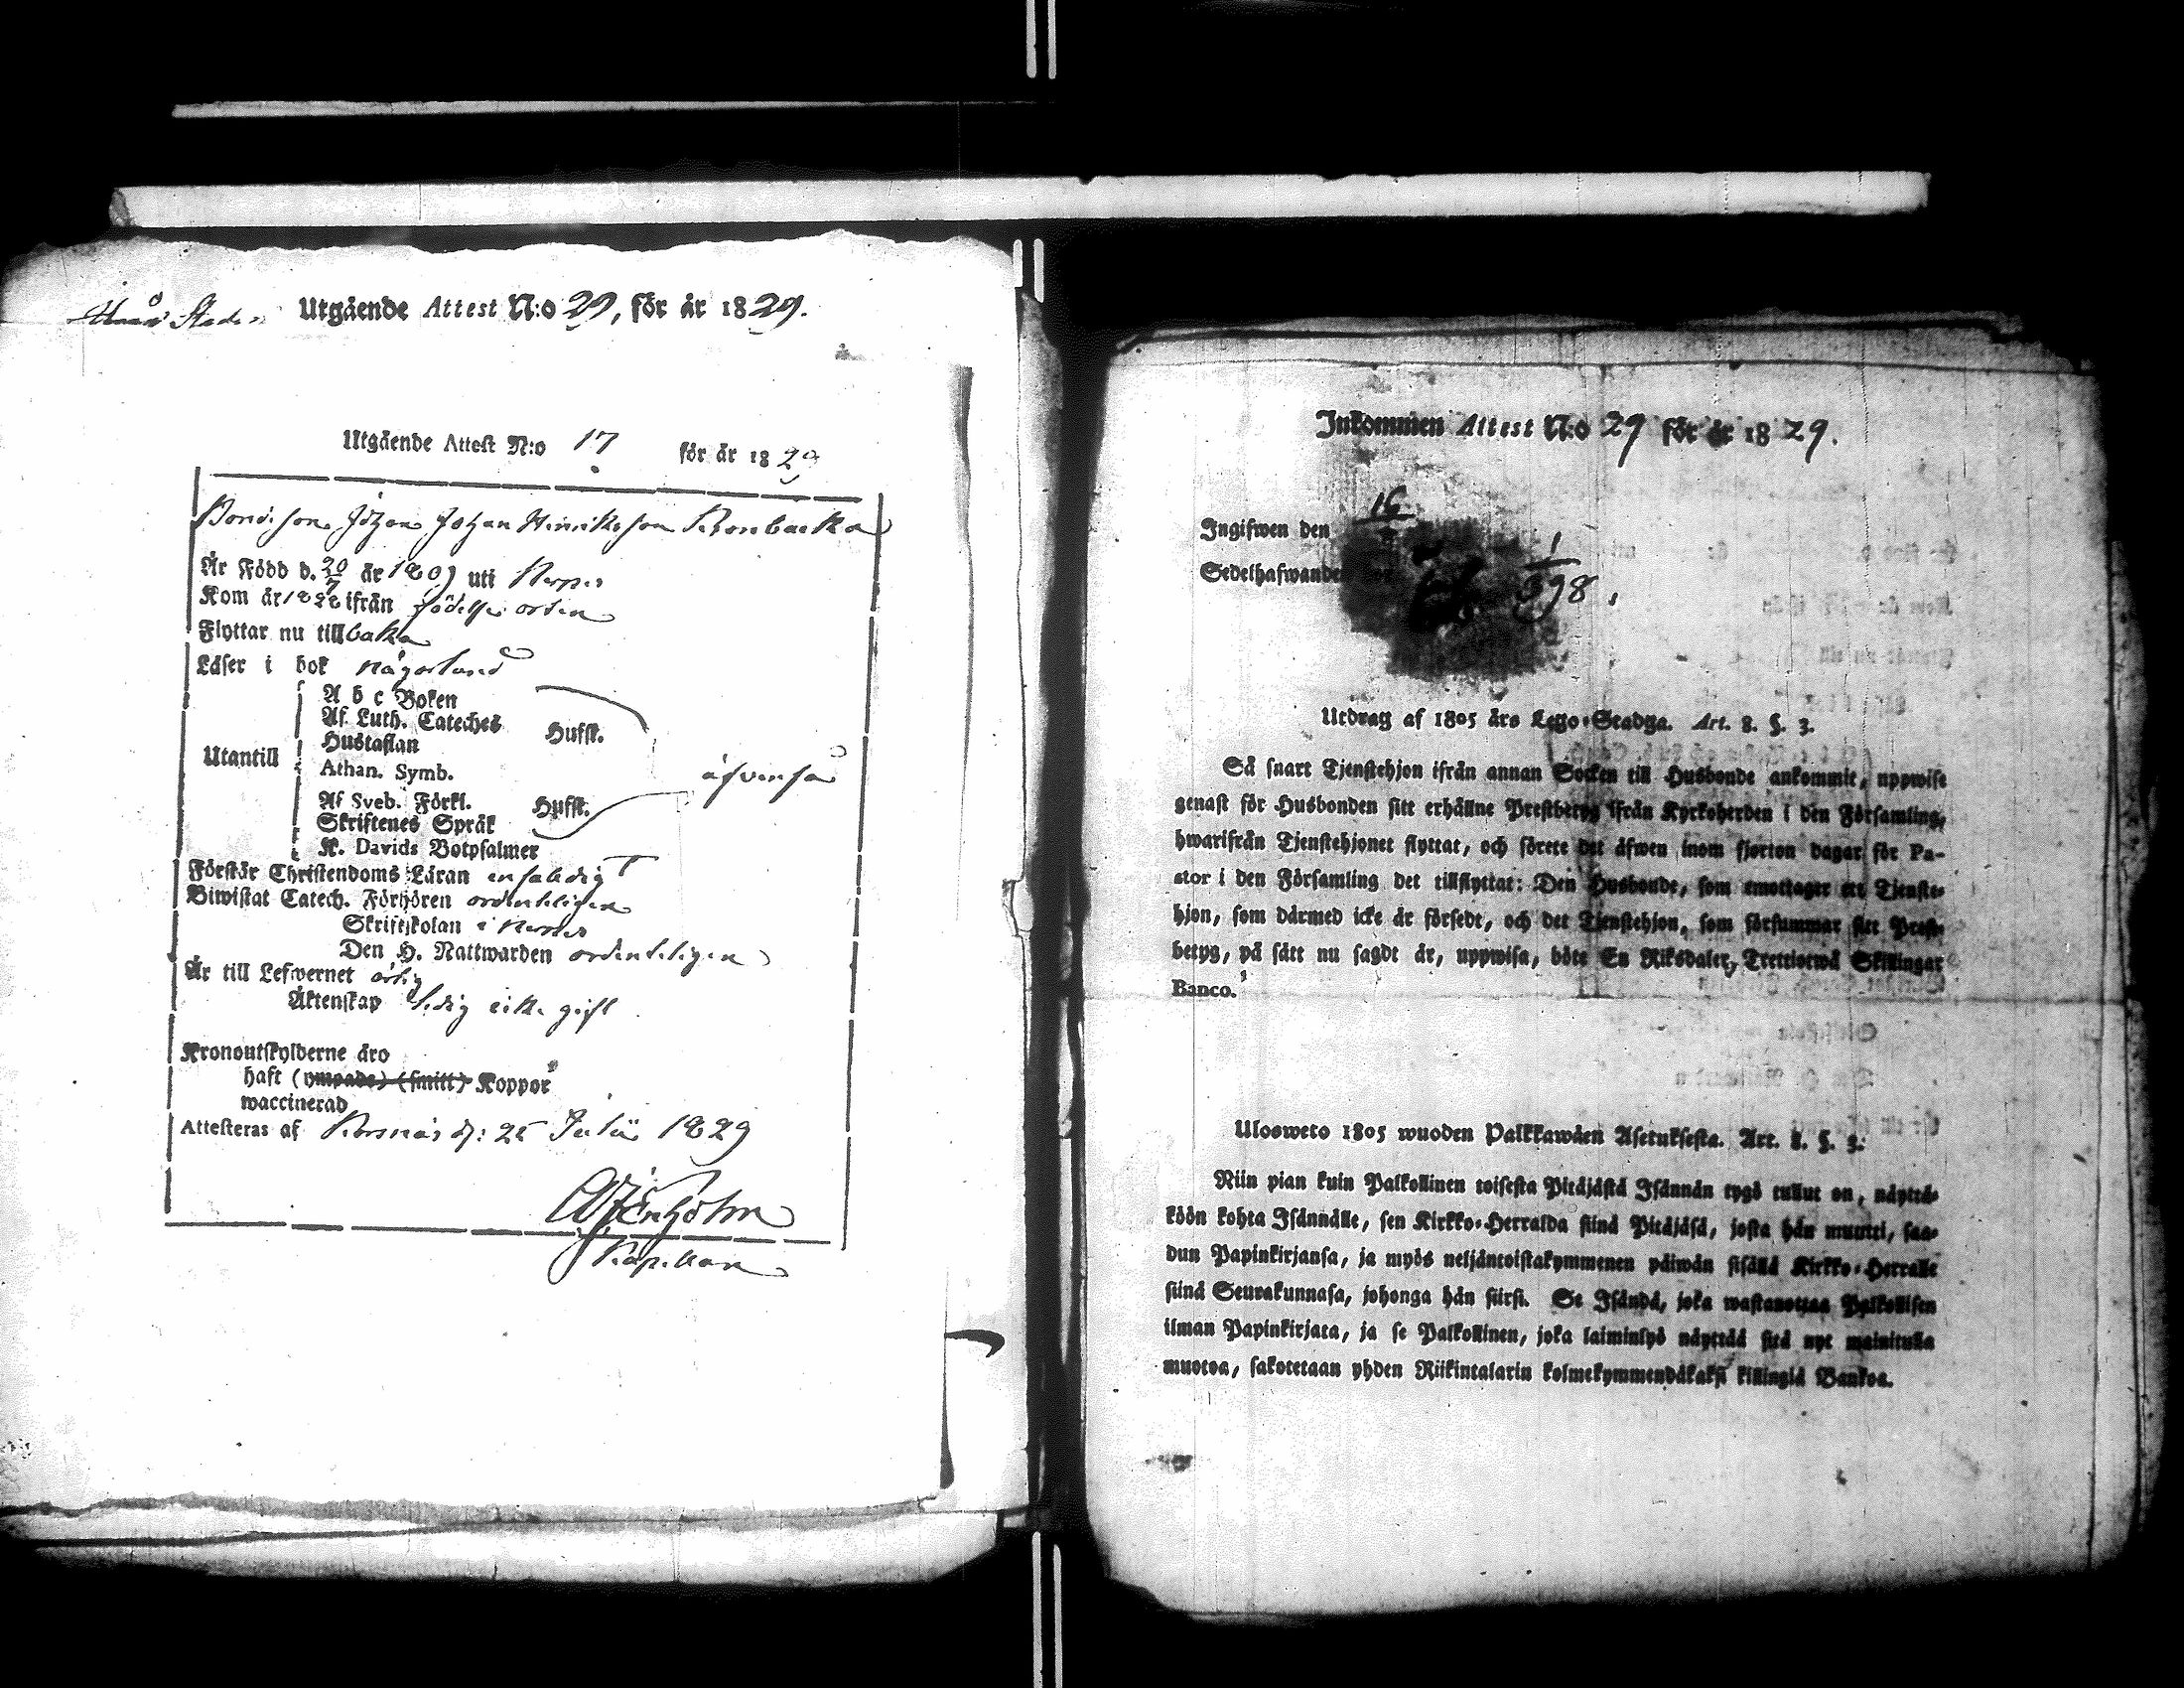 Utgående Attest N:o 29, för år 1829.
Utgående Attest N:o 17 för år 1829
Bondeson Johan Johan Hinriksson
Är Född d. 20/7 år 1809 uti
Kom år 1828 ifrån födelse orten
Flyttar nu tillbaka
Läser i bok någorlund
A b c Boken
Af Luth. Cateches Hufſk.
Hustaflan
Utantill
Athan. Symb. äfvenså
Af Sveb. Förkl. Hufſk.
Skriftenes Språk
K. Davids Botpſalmer
Förſtår Chriſtendoms Läran enfaldigt
Biwiſtat Catech. Förhören ordenteligen
Skriftſkolan i
Den H. Nattwarden ordenteligen
Är till Lefwernet ärlig
Äktenſkap ledig icke gift
Kronoutſkylderne äro
haft (ympade) (ſmitt) Koppor
waccinerad
Atteſteras af d: 25 Julii 1829
Kapellan
Inkommen Attest N:o 29 för år 1829.
Ingifwen den 16
Sedelhafwande 1/398.
Utdrag af 1805 års Lego-Stadga. Art. 8. §. 3.
Så ſnart Tjenſtehjon ifrån annan Socken till Husbonde ankommit, uppwiſe
genaſt för Husbonden ſitt erhållne Preſtbetyg ifrån Kyrkoherden i den Förſamling,
hwarifrån Tjenſtehjonet flyttat, och förete det äfwen inom fjorton dagar för Pa-
ſtor i den Förſamling det tillflyttat: Den Husbonde, ſom emottager ett Tjenſte-
hjon, ſom därmed icke är förſedt, och det Tjenſtehjon, ſom förſummar ſitt Preſt-
betyg, på ſätt nu ſagdt är, uppwiſa, böte En Riksdaler, Trettiotwå Skillingar
Banco.
Ulosweto 1805 wuoden Palkkawäen Aſetukſeſta. Art. 8. §. 3.
Niin pian kuin Palkollinen toiſeſta Pitäjäſtä Iſännän tygö tullut on, näyttä-
köön kohta Iſännälle, ſen Kirkko-Herralda ſiinä Pitäjäſä, joſta hän muutti, ſaa-
dun Papinkirjanſa, ja myös neljäntoiſtakymmenen päiwän ſiſällä Kirkko-Herralle
ſiinä Seurakunnaſa, johonga hän ſiirſi. Se Iſändä, joka waſtanottaa Palkolliſen
ilman Papinkirjata, ja ſe Palkollinen, joka laiminlyö näyttää ſitä nyt mainitulla
muotoa, ſakotetaan yhden Riikintalarin kolmekymmendäkakſi killingiä Bankoa.